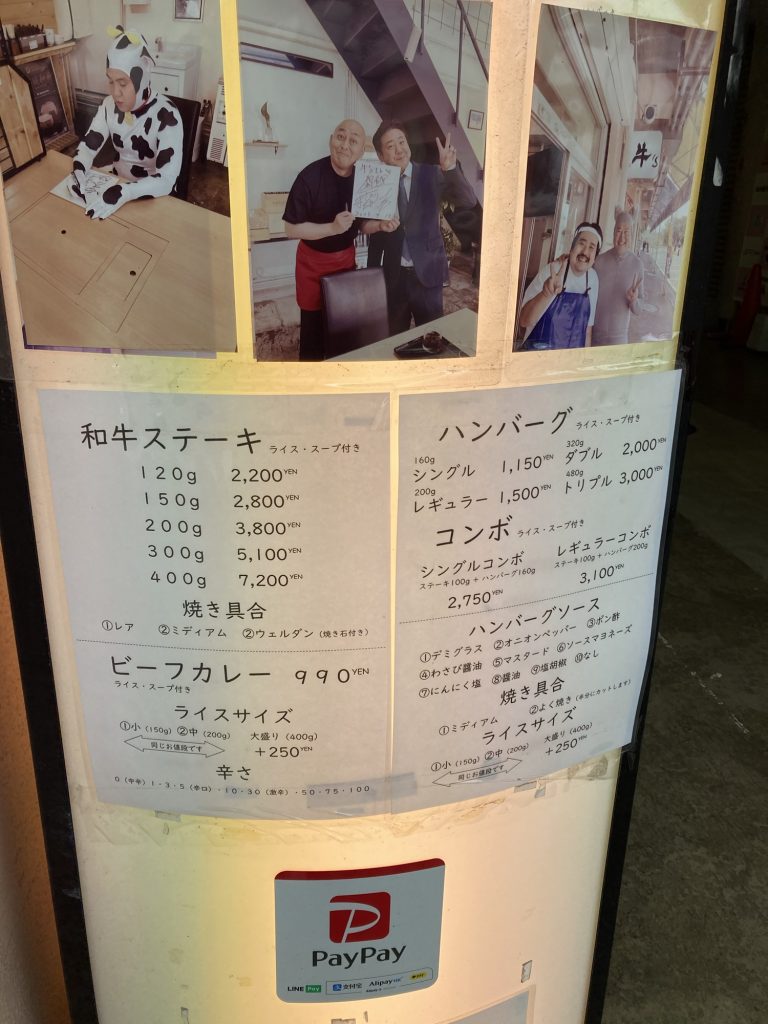 牛's
和牛ステーキ ライス・スープ付き
120g 2,200YEN
150g 2,800YEN
200g 3,800YEN
300g 5,100YEN
400g 7,200YEN
焼き具合
①レア ②ミディアム ②ウェルダン (焼き石付き)
ビーフカレー 990YEN
ライス・スープ付き
ライスサイズ
①小 (150g) ②中 (200g) 大盛り (400g)
同じお値段です +250YEN
辛さ
0 (中辛) 1・3・5 (辛口) ・10・30 (激辛) ・50・75・100
ハンバーグ ライス・スープ付き
160g 320g
シングル 1,150YEN ダブル 2,000YEN
200g 480g
レギュラー 1,500YEN トリプル 3,000YEN
コンボ ライス・スープ付き
シングルコンボ レギュラーコンボ
ステーキ100g + ハンバーグ160g ステーキ100g + ハンバーグ200g
2,750YEN 3,100YEN
ハンバーグソース
①デミグラス ②オニオンペッパー ③ポン酢
④わさび醤油 ⑤マスタード ⑥ソースマヨネーズ
⑦にんにく塩 ⑧醤油 ⑨塩胡椒 ⑩なし
焼き具合
①ミディアム ②よく焼き (半分にカットします)
ライスサイズ
①小 (150g) ②中 (200g) 大盛り (400g)
同じお値段です +250YEN
PayPay
LINE Pay 支付宝 Alipay